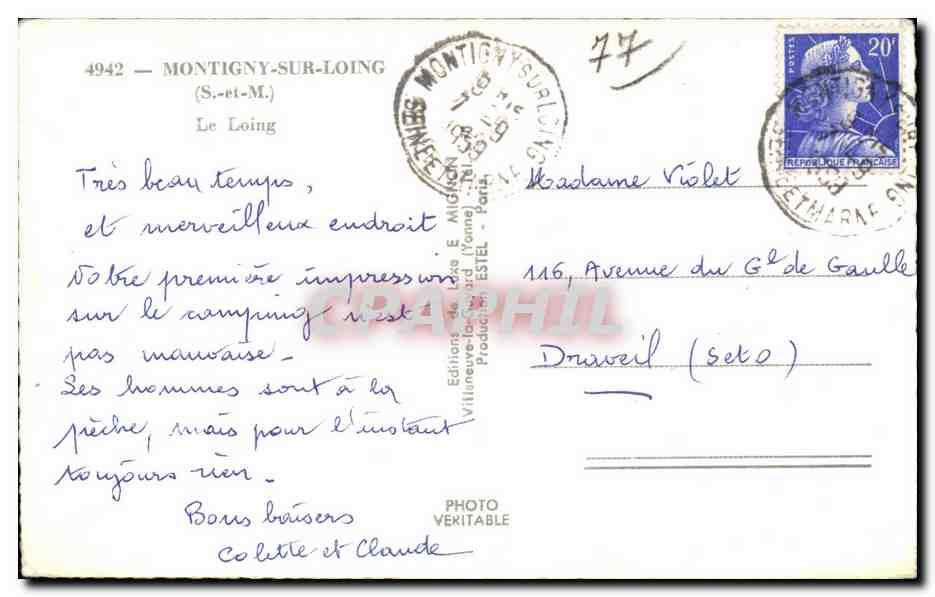 4942 — MONTIGNY-SUR-LOING
(S.-et-M.)
Le Loing
Très beau temps,
et merveilleux endroit
Notre première impression
sur le camping n'est
pas mauvaise_
Les hommes sont à la
pêche, mais pour l'instant
toujours rien_
Bons baisers
Colette et Claude
PHOTO
VERITABLE
Editions de Luxe E. MIGNON
Villeneuve-la-Guyard (Yonne)
Production ESTEL - Paris
77
MONTIGNY SUR LOING
SEINE ET MARNE
POSTES
20F
REPUBLIQUE FRANÇAISE
Madame Violet
116, Avenue du Gl de Gaulle
Draveil (SetO)
CPAPHIL